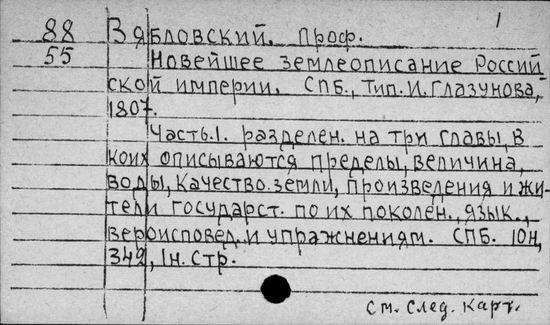 1
88 Зябловский. Проф.
55 Новейшее землеописание Россий
ской империи. СПБ., Тип. И. Глазунова,
1807.
Часть.1. разделен. на три главы, в
коих описываются пределы, величина,
воды, качество земли, произведения и жи-
тели государст. по их поколен., язык.,
вероисповед. и упражнениям. СПБ. 10н,
342, 1н. стр.
См. след. карт.